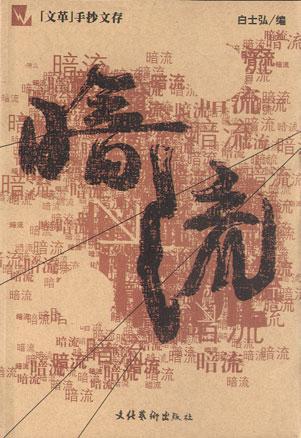 「文革」手抄文存
白士弘/编
暗流
文化艺術出版社